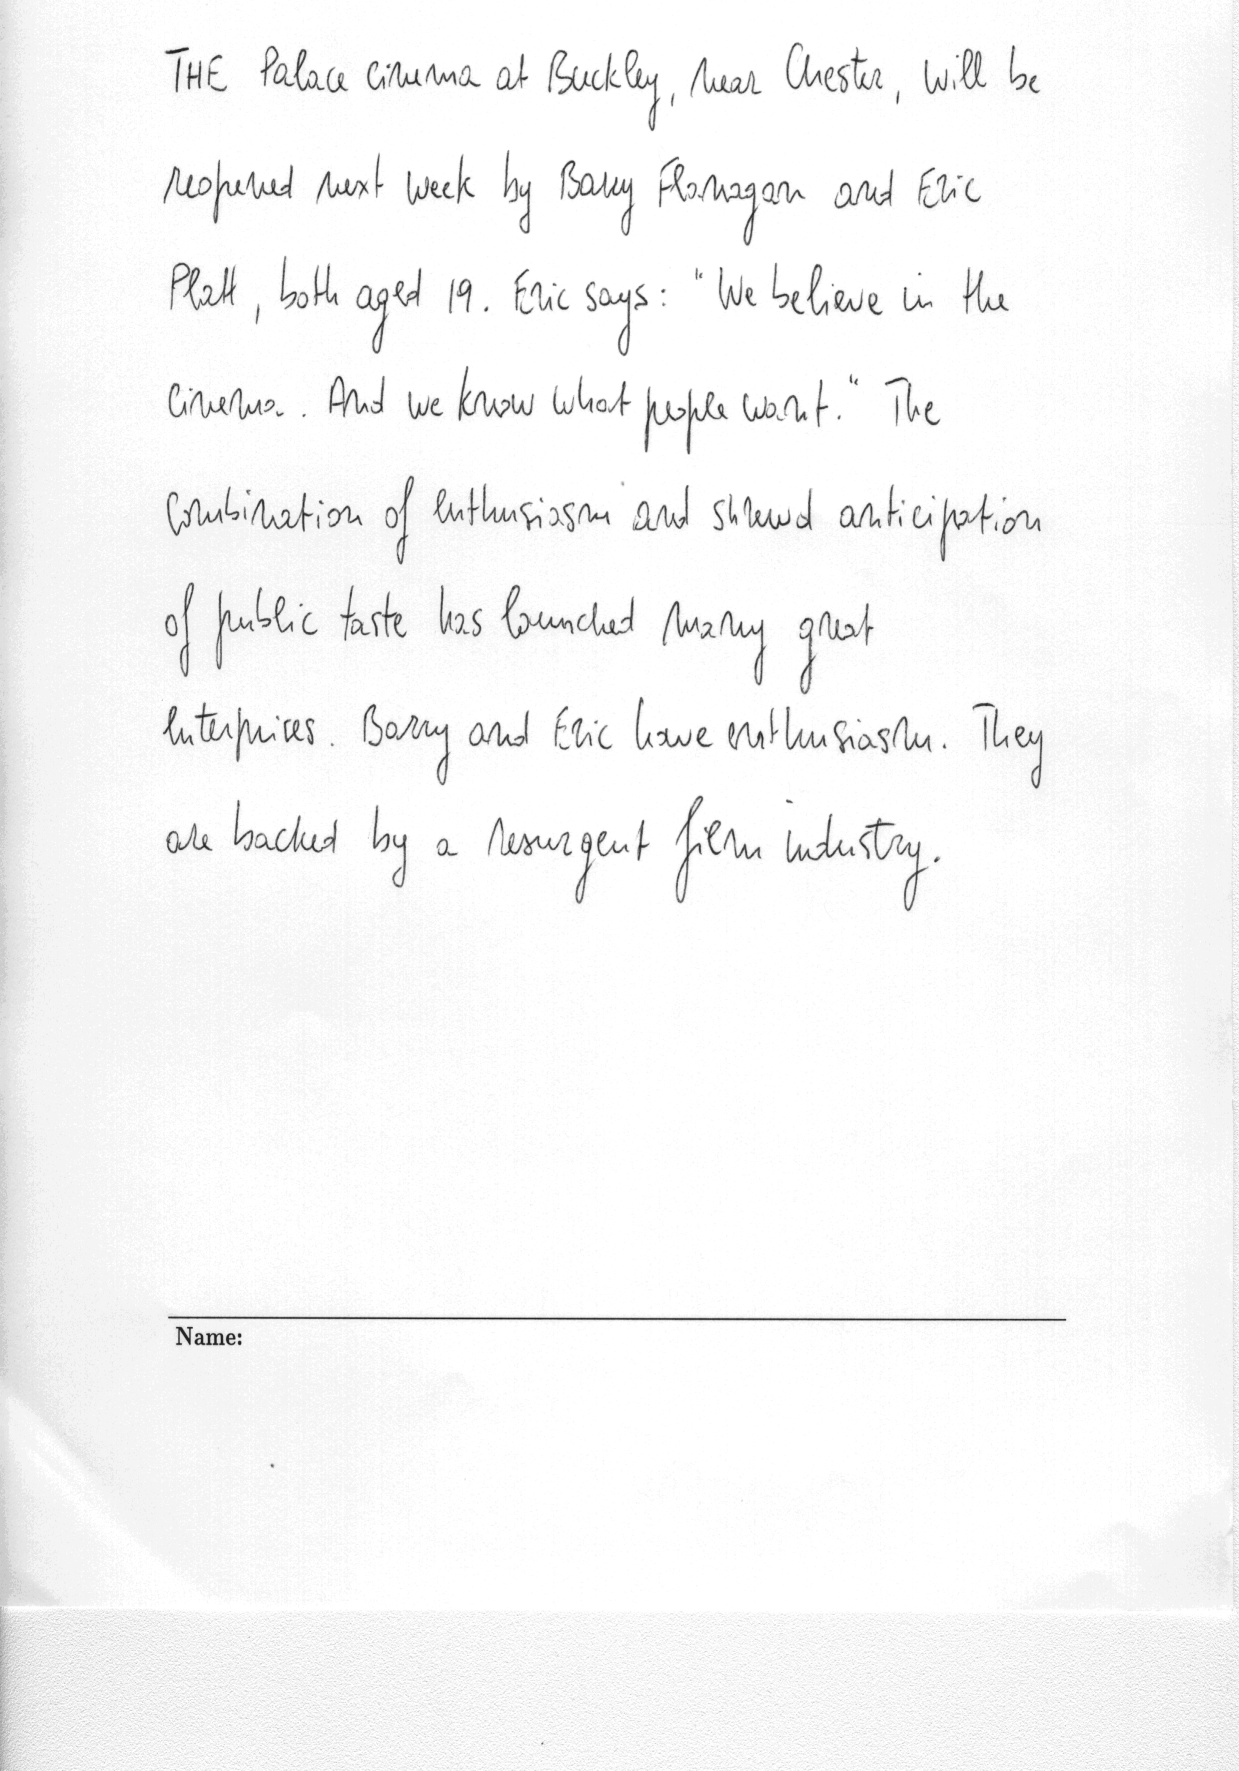 THE Palace cinema at Buckley, near Chester, will be
reopened next week by Barry Flanagan and Eric
Platt, both aged 19. Eric says: "We believe in the
cinema. And we know what people want." The
combination of enthusiasm and shrewd anticipation
of public taste has launched many great
enterprises. Barry and Eric have enthusiasm. They
are backed by a resurgent film industry.
Name: